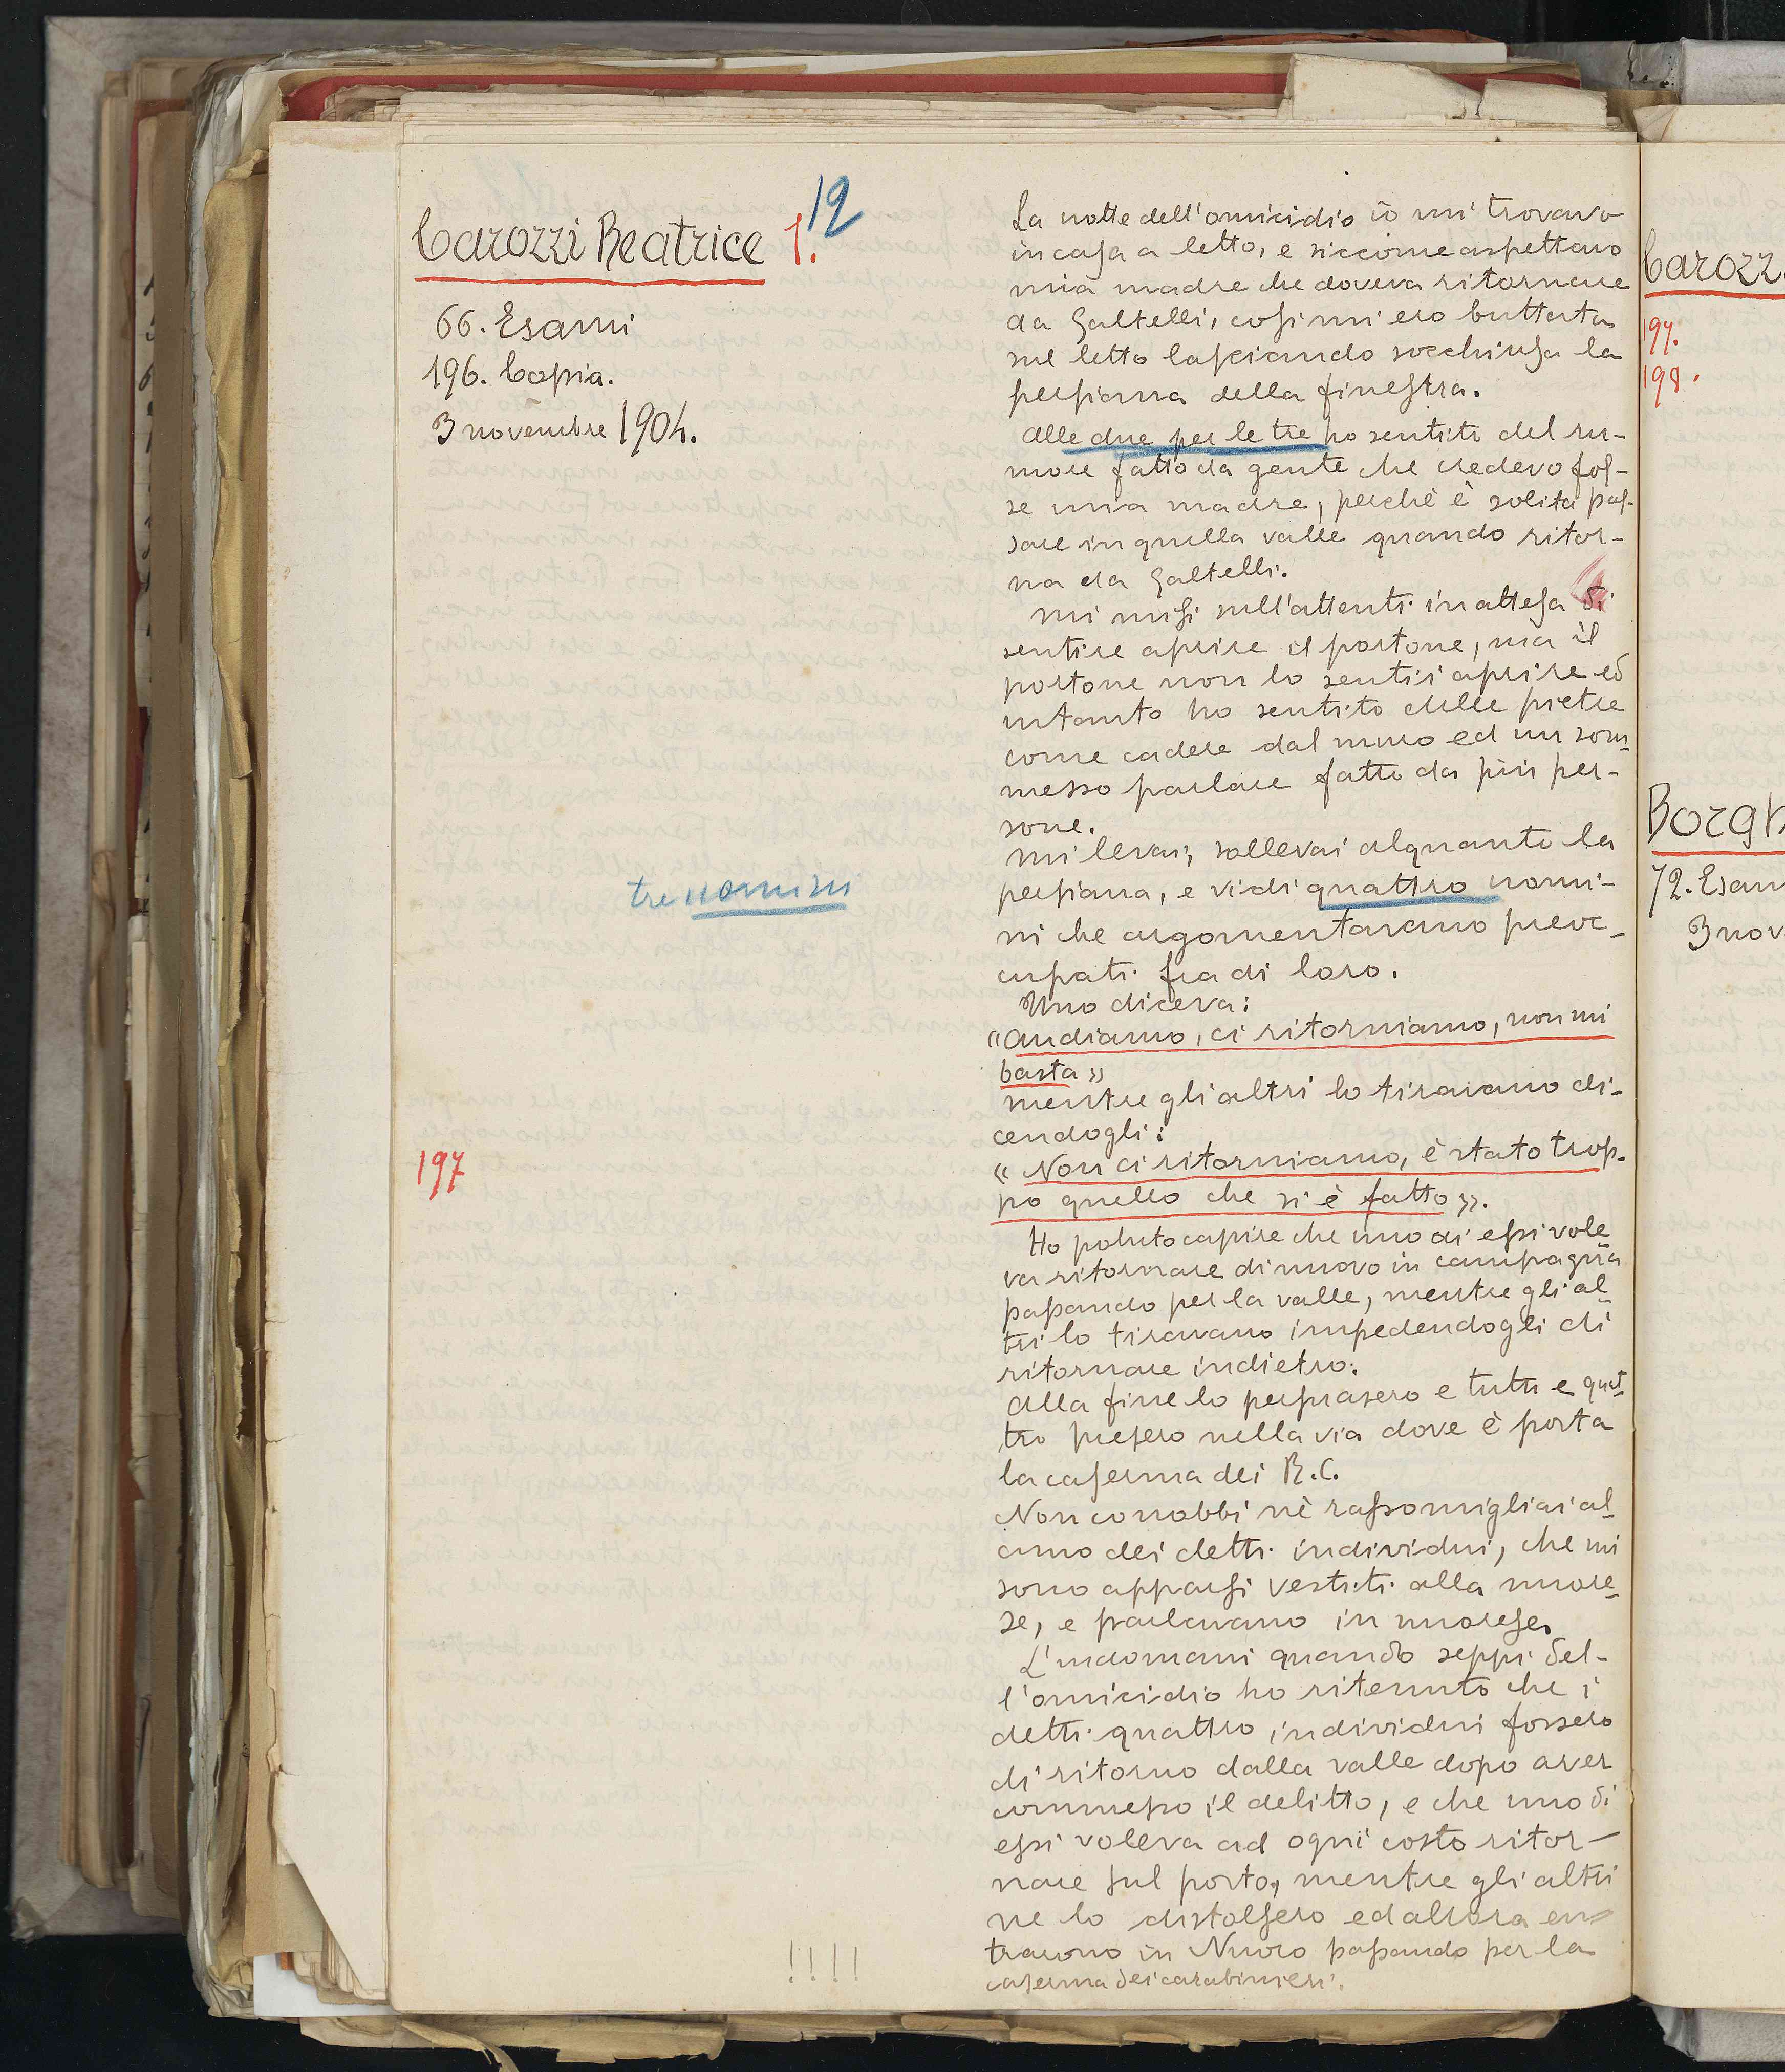 Carozzi Beatrice 1. 12
66. Esami
196. Copia.
3 novembre 1904.
tre uomini
197
!!!!
La notte dell'omicidio io mi trovavo
in casa a letto, e siccome aspettavo
mia madre che doveva ritornare
da Galtelli, così mi ero buttata
sul letto lasciando socchiusa la
persiana della finestra.
Alle due per le tre ho sentito del ru-
more fatto da gente che credevo fos-
se mia madre, perchè è solita pas-
sare in quella valle quando ritor-
na da Galtelli.
Mi misi sull'attenti in attesa di
sentire aprire il portone, ma il
portone non lo sentii aprire ed
intanto ho sentito delle pietre
come cadere dal muro ed un som-
messo parlare fatto da più per-
sone.
Mi levai, sollevai alquanto la
persiana, e vidi quattro uomi-
ni che argomentavano preoc-
cupati fra di loro.
Uno diceva:
«Andiamo, ci ritorniamo, non mi
basta»
mentre gli altri lo tiravano di-
cendogli:
«Non ci ritorniamo, è stato trop-
po quello che si è fatto».
Ho potuto capire che uno di essi vole-
va ritornare di nuovo in campagna
passando per la valle, mentre gli al-
tri lo tiravano impedendogli di
ritornare indietro.
Alla fine lo persuasero e tutti e quat-
tro presero nella via dove è posta
la caserma dei R.C.
Non conobbi nè rassomigliai al-
cuno dei detti individui, che mi
sono apparsi vestiti alla nuore-
se, e parlavano in nuorese.
L'indomani quando seppi del-
l'omicidio ho ritenuto che i
detti quattro individui fossero
di ritorno dalla valle dopo aver
commesso il delitto, e che uno di
essi voleva ad ogni costo ritor-
nare sul posto, mentre gli altri
ne lo distolsero ed allora en-
trarono in Nuoro passando per la
caserma dei carabinieri.
Carozz
197.
198.
Borgh
72. Esam
3 nov